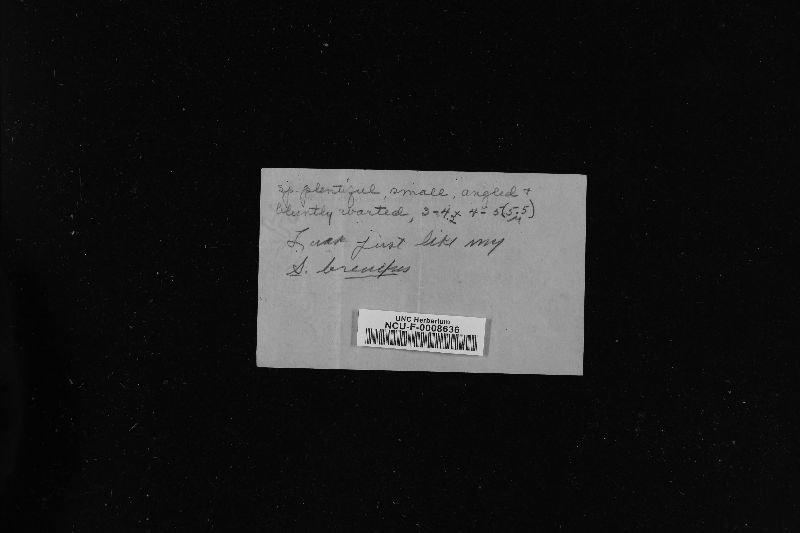 sp. plentiful, small, angled +
bluntly warted, 3-4 x 4-5(5.5)
just like my
S. brevipes
UNC Herbarium
NCU-F-0008636